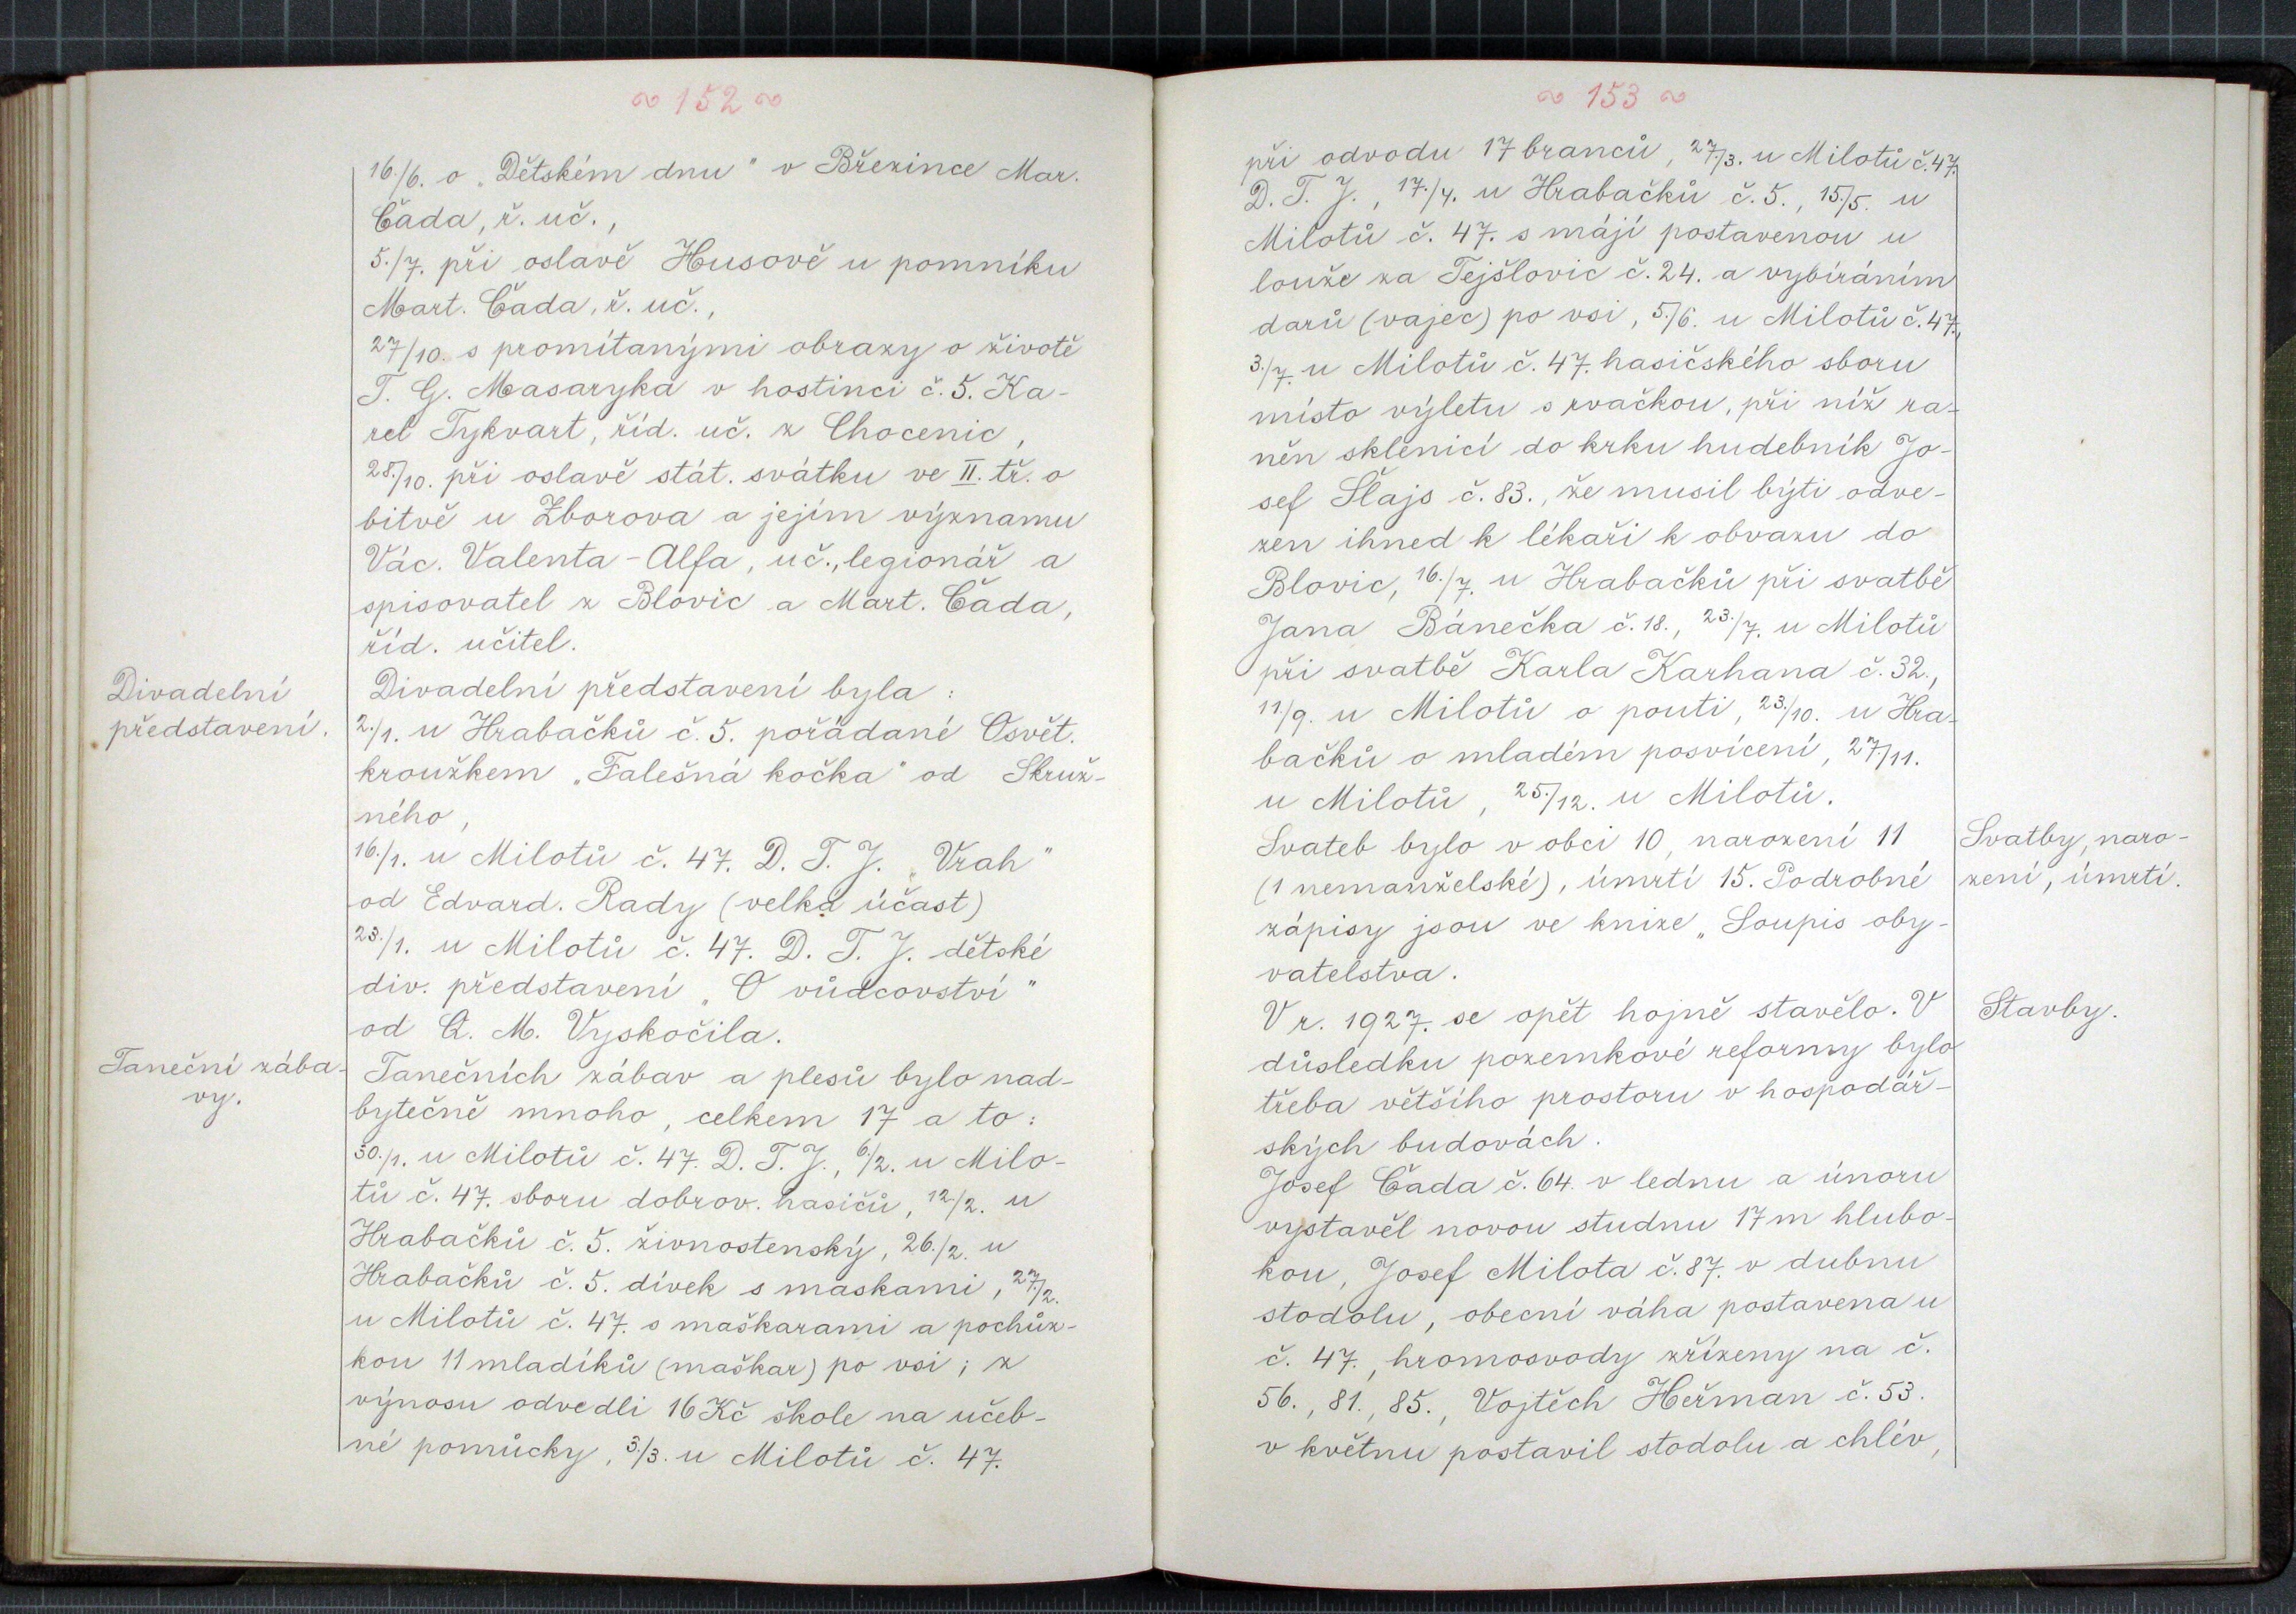 ~ 152 ~
16./6. o „Dětském dnu" v Březince Mar.
Čada, ř. uč.,
5./7. při oslavě Husově u pomníku
Mart. Čada, ř. uč.,
27/10. s promítanými obrazy o životě
T. G. Masaryka v hostinci č. 5. Ka-
rel Tykvart, říd. uč. z Chocenic,
28./10. při oslavě stát. svátku ve II. tř. o
bitvě u Zborova a jejím významu
Vác. Valenta-Alfa, uč., legionář a
spisovatel z Blovic a Mart. Čada,
říd. učitel.
Divadelní
představení.
Divadelní představení byla:
2./1. u Hrabačků č. 5. pořádané Osvět.
kroužkem „Falešná kočka" od Skruž-
ného,
16./1. u Milotů č. 47. D. T. J. „Vrah"
od Edvard. Rady (velká účast)
23./1. u Milotů č. 47. D. T. J. dětské
div. představení „O vůdcovství"
od Q. M. Vyskočila.
Taneční zába-
vy.
Tanečních zábav a plesů bylo nad-
bytečně mnoho, celkem 17 a to:
30./1. u Milotů č. 47. D. T. J., 6./2. u Milo-
tů č. 47. sboru dobrov. hasičů, 12./2. u
Hrabačků č. 5. živnostenský, 26./2. u
Hrabačků č. 5. dívek s maskami, 27./2.
u Milotů č. 47. s maškarami a pochůz-
kou 11 mladíků (maškar) po vsi; z
výnosu odvedli 16 Kč škole na učeb-
né pomůcky, 3./3. u Milotů č. 47.
~ 153 ~
při odvodu 17 branců, 27./3. u Milotů č. 47.
D. T. J., 17./4. u Hrabačků č. 5., 15./5. u
Milotů č. 47. s májí postavenou u
louže za Tejšlovic č. 24. a vybíráním
darů (vajec) po vsi, 5./6. u Milotů č. 47.,
3./7. u Milotů č. 47. hasičského sboru
místo výletu s rvačkou, při níž ra-
něn sklenicí do krku hudebník Jo-
sef Šlajs č. 83., že musil býti odve-
zen ihned k lékaři k obvazu do
Blovic, 16./7. u Hrabačků při svatbě
Jana Bánečka č. 18., 23./7. u Milotů
při svatbě Karla Karhana č. 32.,
11./9. u Milotů o pouti, 23./10. u Hra-
bačků o mladém posvícení, 27./11.
u Milotů, 25./12. u Milotů.
Svateb bylo v obci 10, narození 11
(1 nemanželské), úmrtí 15. Podrobné
zápisy jsou ve knize „Soupis oby-
vatelstva.
Svatby, naro-
zení, úmrtí.
V r. 1927. se opět hojně stavělo. V
důsledku pozemkové reformy bylo
třeba většího prostoru v hospodář-
ských budovách.
Stavby.
Josef Čada č. 64. v lednu a únoru
vystavěl novou studnu 17 m hlubo-
kou, Josef Milota č. 87. v dubnu
stodolu, obecní váha postavena u
č. 47., hromosvody zřízeny na č.
56., 81., 85., Vojtěch Heřman č. 53.
v květnu postavil stodolu a chlév,